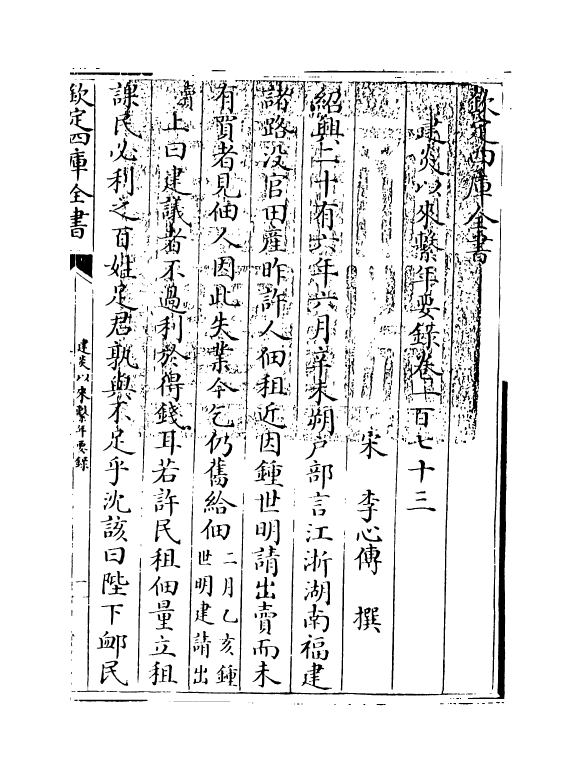 欽定四庫全書
建炎以來繫年要錄卷一百七十三
宋 李心傳 撰
紹興二十有六年六月辛未朔戶部言江浙湖南福建
諸路沒官田產昨許人佃租近因鍾世明請出賣而未
有買者見佃人因此失業今乞仍舊給佃二月乙亥鍾
世明建請出
賣
上曰建議者不過利於得錢耳若許民租佃量立租
課民必利之百姓足君孰與不足乎沈該曰陛下卹民
欽定四庫全書
建炎以來繫年要錄
一